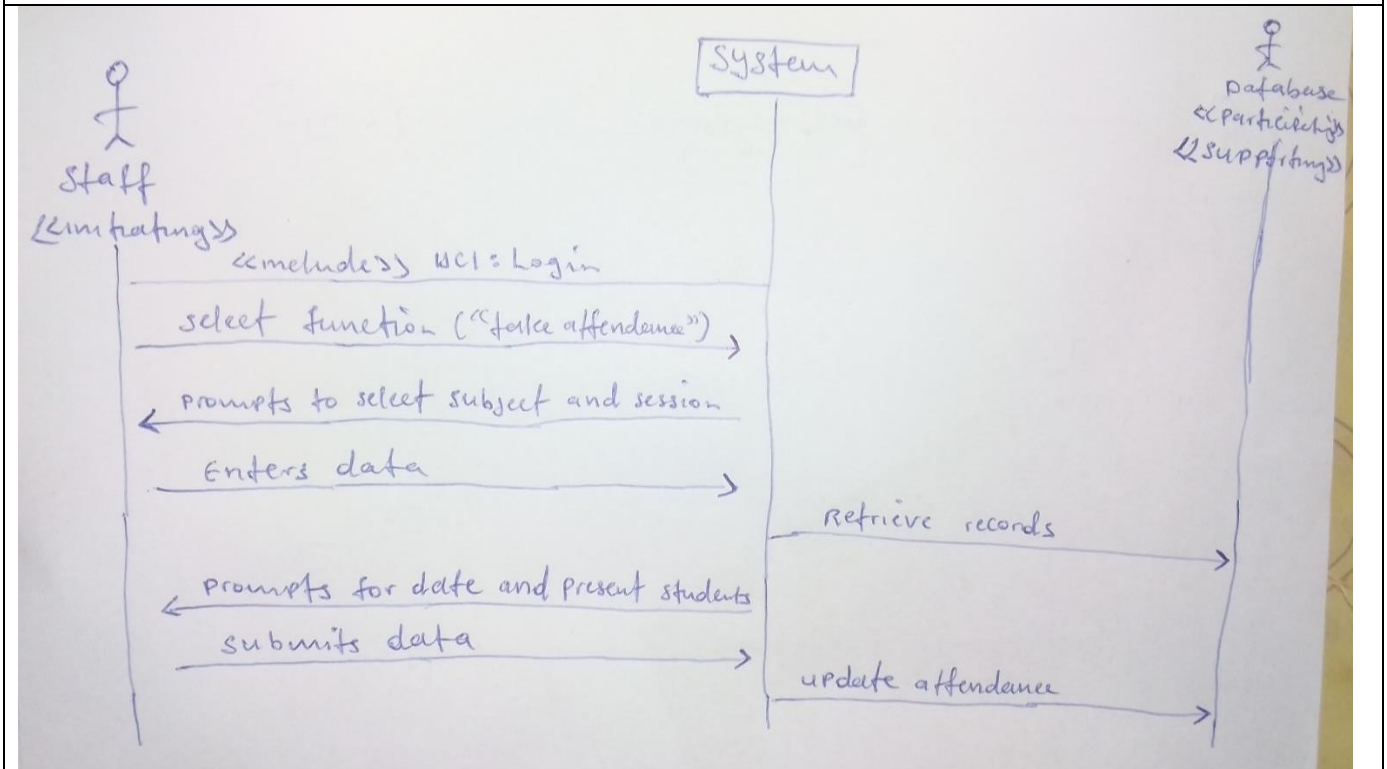 System
Database
<<participating>>
<<supporting>>
Staff
<<initiating>>
<<include>> UC1: Login
select function ("take attendance")
prompts to select subject and session
Enters data
Retrieve records
prompts for date and present students
submits data
update attendance